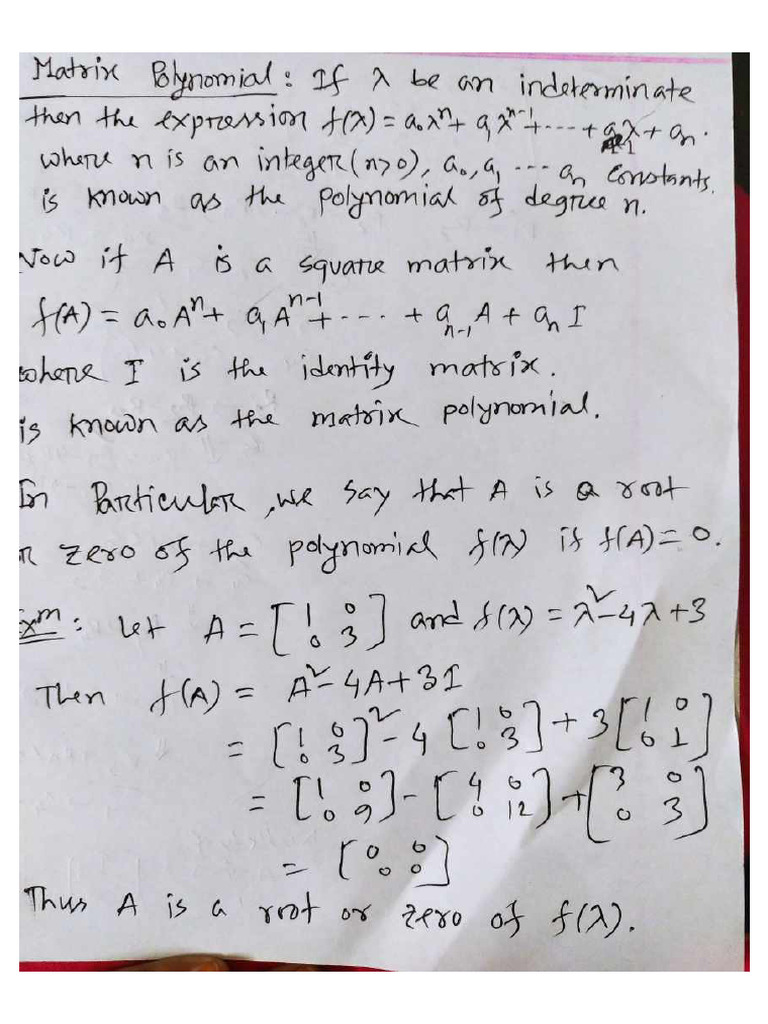 Matrix Polynomial: If λ be an indeterminate
then the expression f(λ) = a₀λⁿ + a₁λⁿ⁻¹ + ... + aₙ₋₁λ + aₙ.
where n is an integer (n>0), a₀, a₁ ... aₙ constants.
is known as the polynomial of degree n.
Now if A is a square matrix then
f(A) = a₀Aⁿ + a₁Aⁿ⁻¹ + ... + aₙ₋₁A + aₙI
where I is the identity matrix.
is known as the matrix polynomial.
In Particular, we say that A is a root
or zero of the polynomial f(λ) if f(A) = 0.
Exᵐ: Let A = [1 0; 0 3] and f(λ) = λ² - 4λ + 3
Then f(A) = A² - 4A + 3I
= [1 0; 0 3]² - 4 [1 0; 0 3] + 3 [1 0; 0 1]
= [1 0; 0 9] - [4 0; 0 12] + [3 0; 0 3]
= [0 0; 0 0]
Thus A is a root or zero of f(λ).